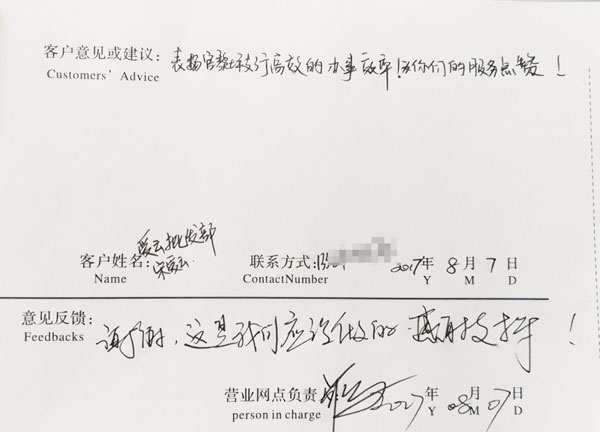 客户意见或建议：表扬宫黎支行高效的办事效率！为你们的服务点赞！
Customers' Advice
爱云批发部
客户姓名：宋爱云 联系方式： 2017年8月7日
Name ContactNumber Y M D
意见反馈：谢谢，这是我们应该做的 感谢支持！
Feedbacks
营业网点负责 2017年08月07日
person in charge Y M D